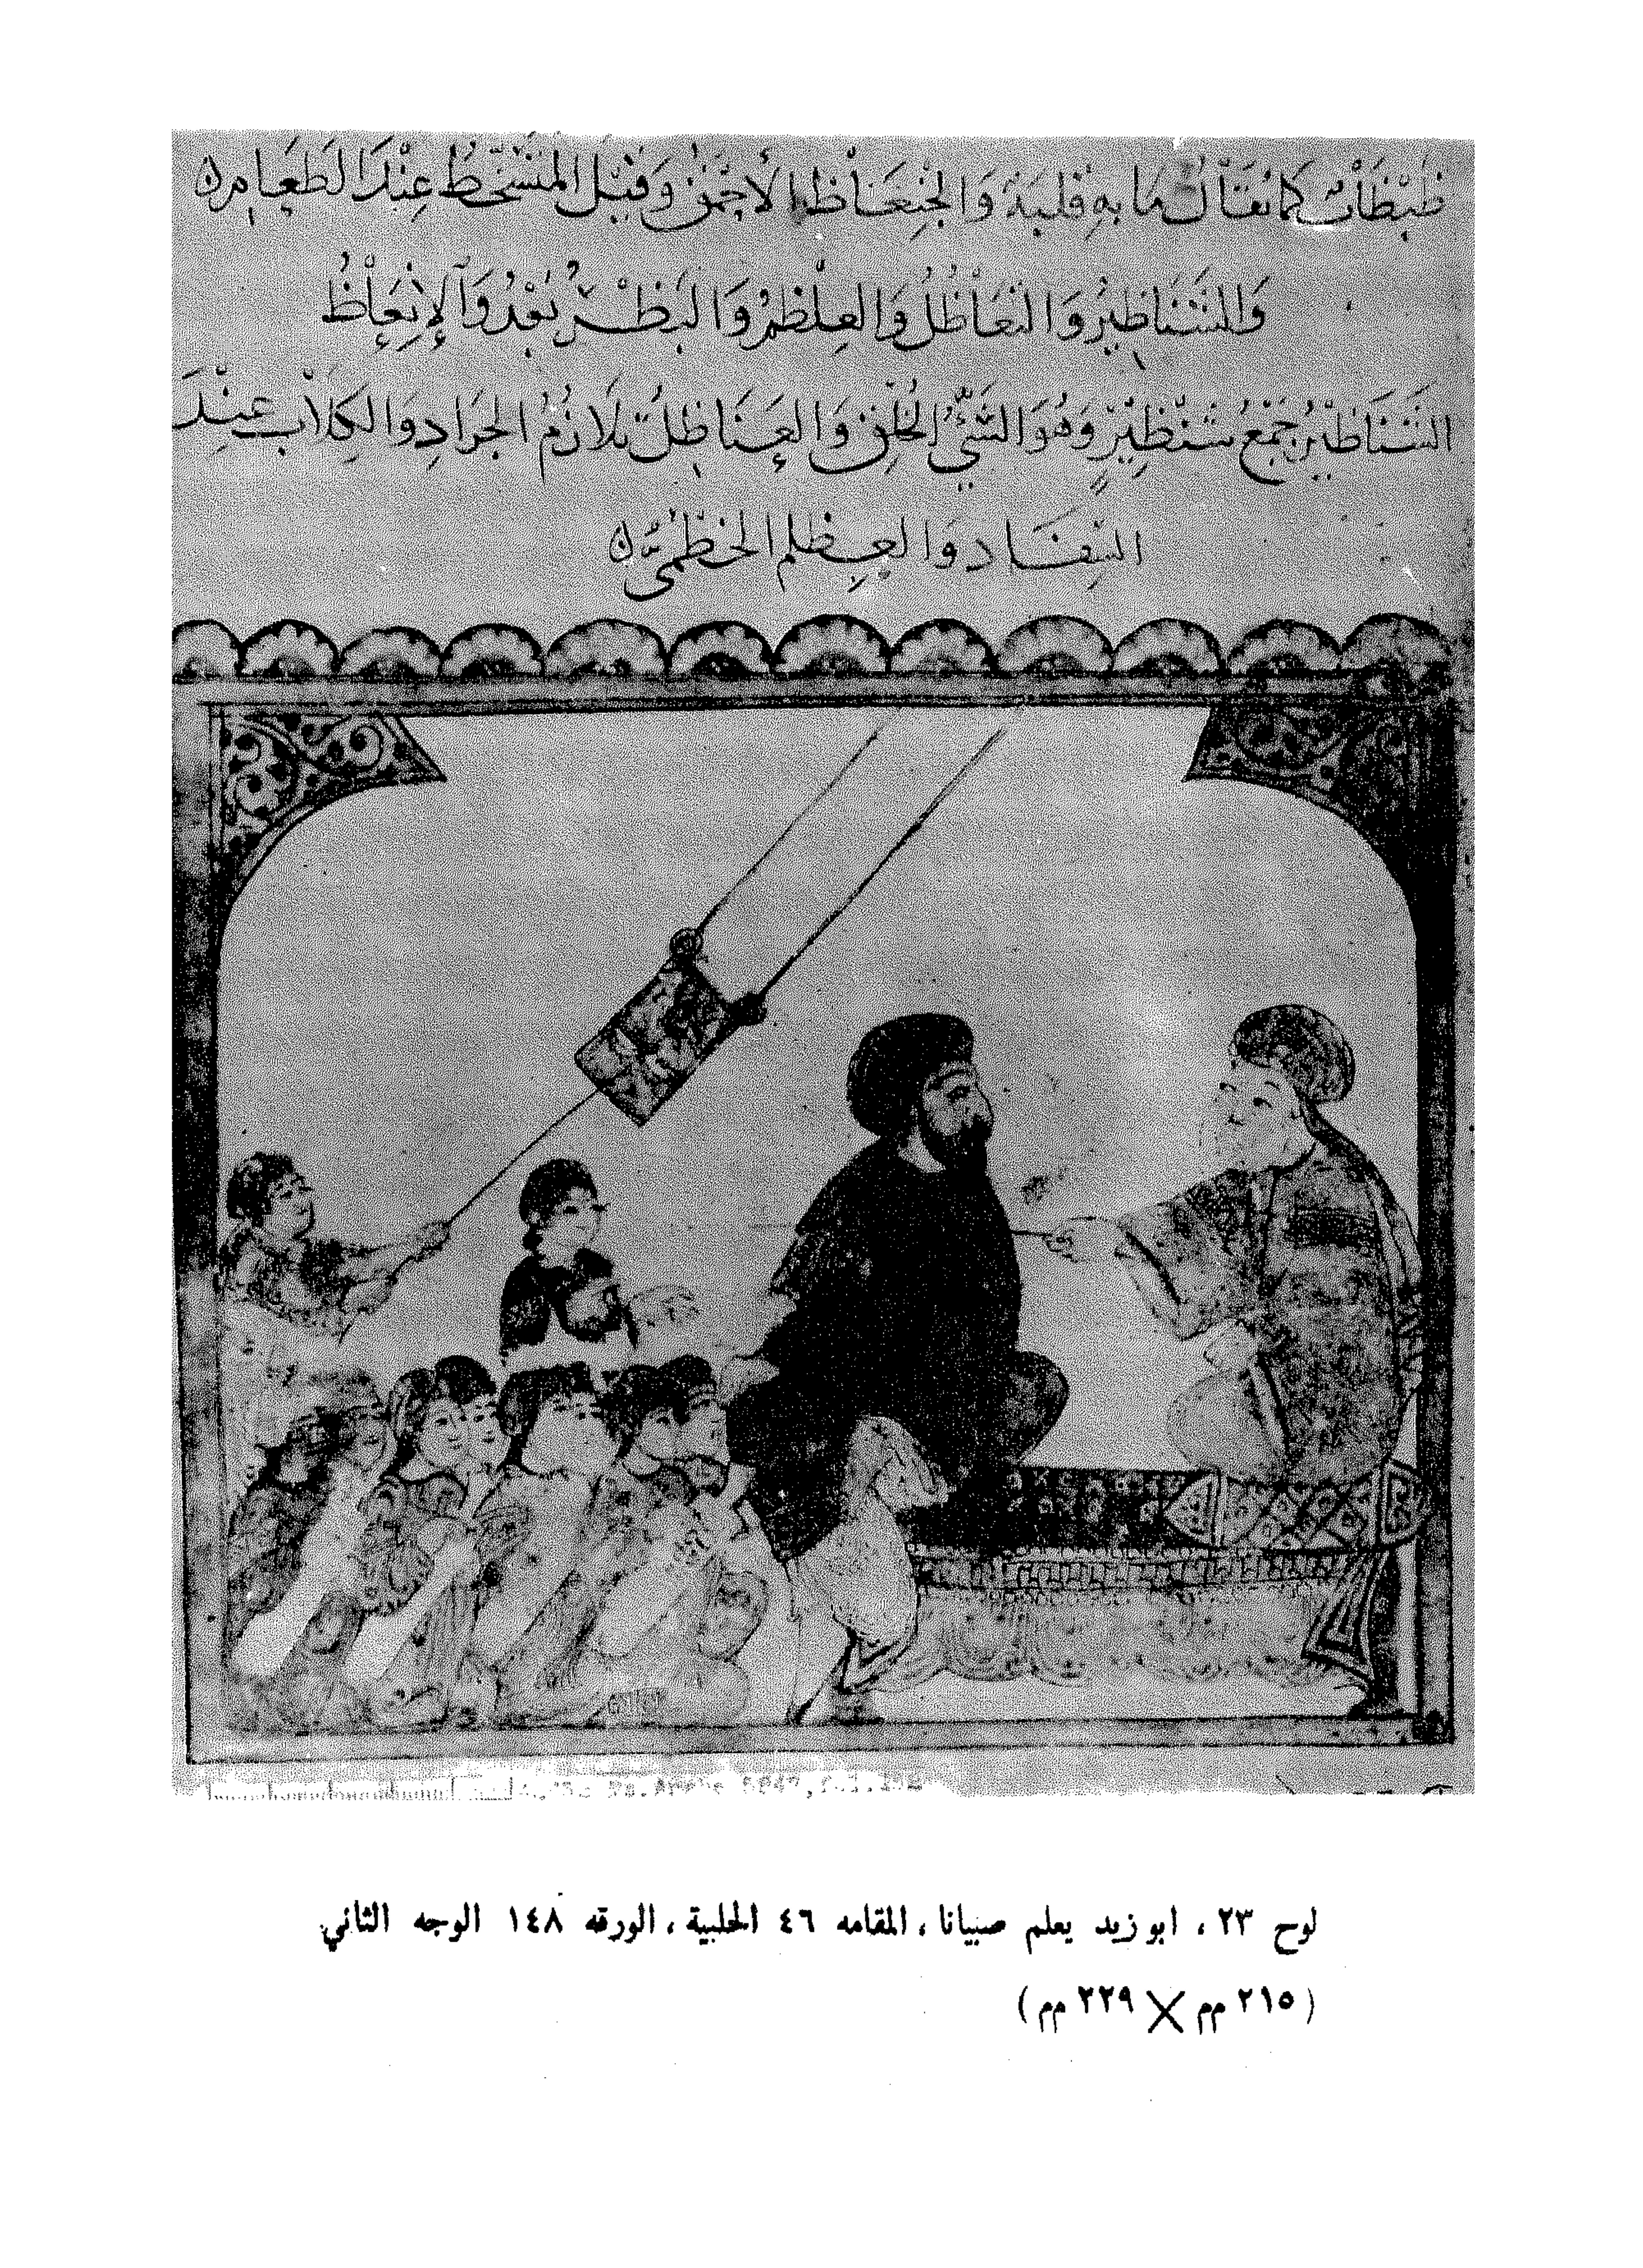 ظبظاب كما يقال ما به قلبة والجنعاظ الأحمق وقيل المتسخط عند الطعام
وَالشَّنَاظِيرُ وَالتَّعَاظُلُ وَالعِظْلِمُ وَالبَظْرُ بَعْدُ وَالإِنْعَاظُ
الشَّنَاظِيْرُ جَمْعُ شِنْظِيْرٍ وَهُوَ السَّيِّئُ الخُلُقِ وَالتعَاظلُ تَلَازُمُ الجَرَادِ وَالكِلَابِ عِنْدَ
السِفَادِ وَالعِظلم الخطمىّ
Ms. Arabe 5847, fol. 148
لوح ٢٣ ، ابو زيد يعلم صبيانا ، المقامه ٤٦ الحلبية ، الورقه ١٤٨ الوجه الثاني
(٢١٥ مم × ٢٢٩ مم)